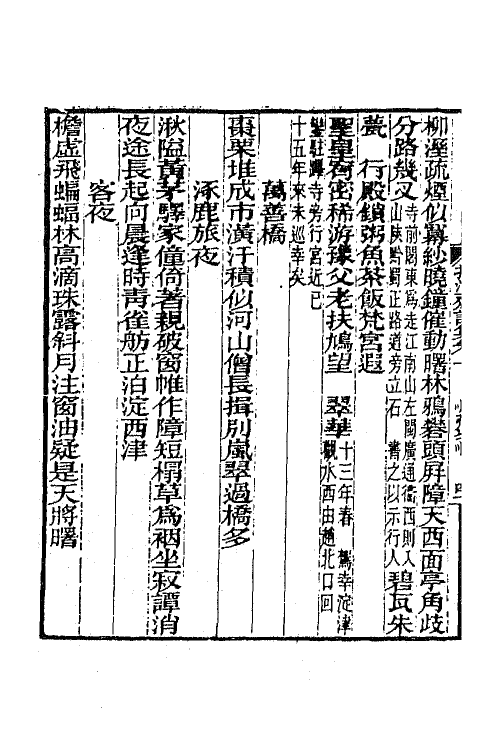 柳溼疏煙似幕紗曉鐘催動曙林鴉礬頭屛障天西面亭角歧
分路幾叉寺前閣東為走江南山左閣廣通衢西則入山陝黔蜀正路道旁立石書之以示行人碧瓦朱
甍　行殿鎖粥魚茶飯梵宮遐
聖皐宥密稀游豫父老扶鳩望　翠華十三年春　駕幸淀津觀水西由趙北口回
鑾駐蹕寺旁行宮近已
十五年來未巡幸矣
萬善橋
棗栗堆成市潢汙積似河山僧長揖別嵐翠過橋多
涿鹿旅夜
湫隘黃茅驛家僮倚著親破窗帷作障短榻草為裀坐寂譚消
夜途長起向晨逢時靑雀舫正泊淀西津
客夜
檐虛飛蝙蝠林高滴珠露斜月注窗油疑是天將曙